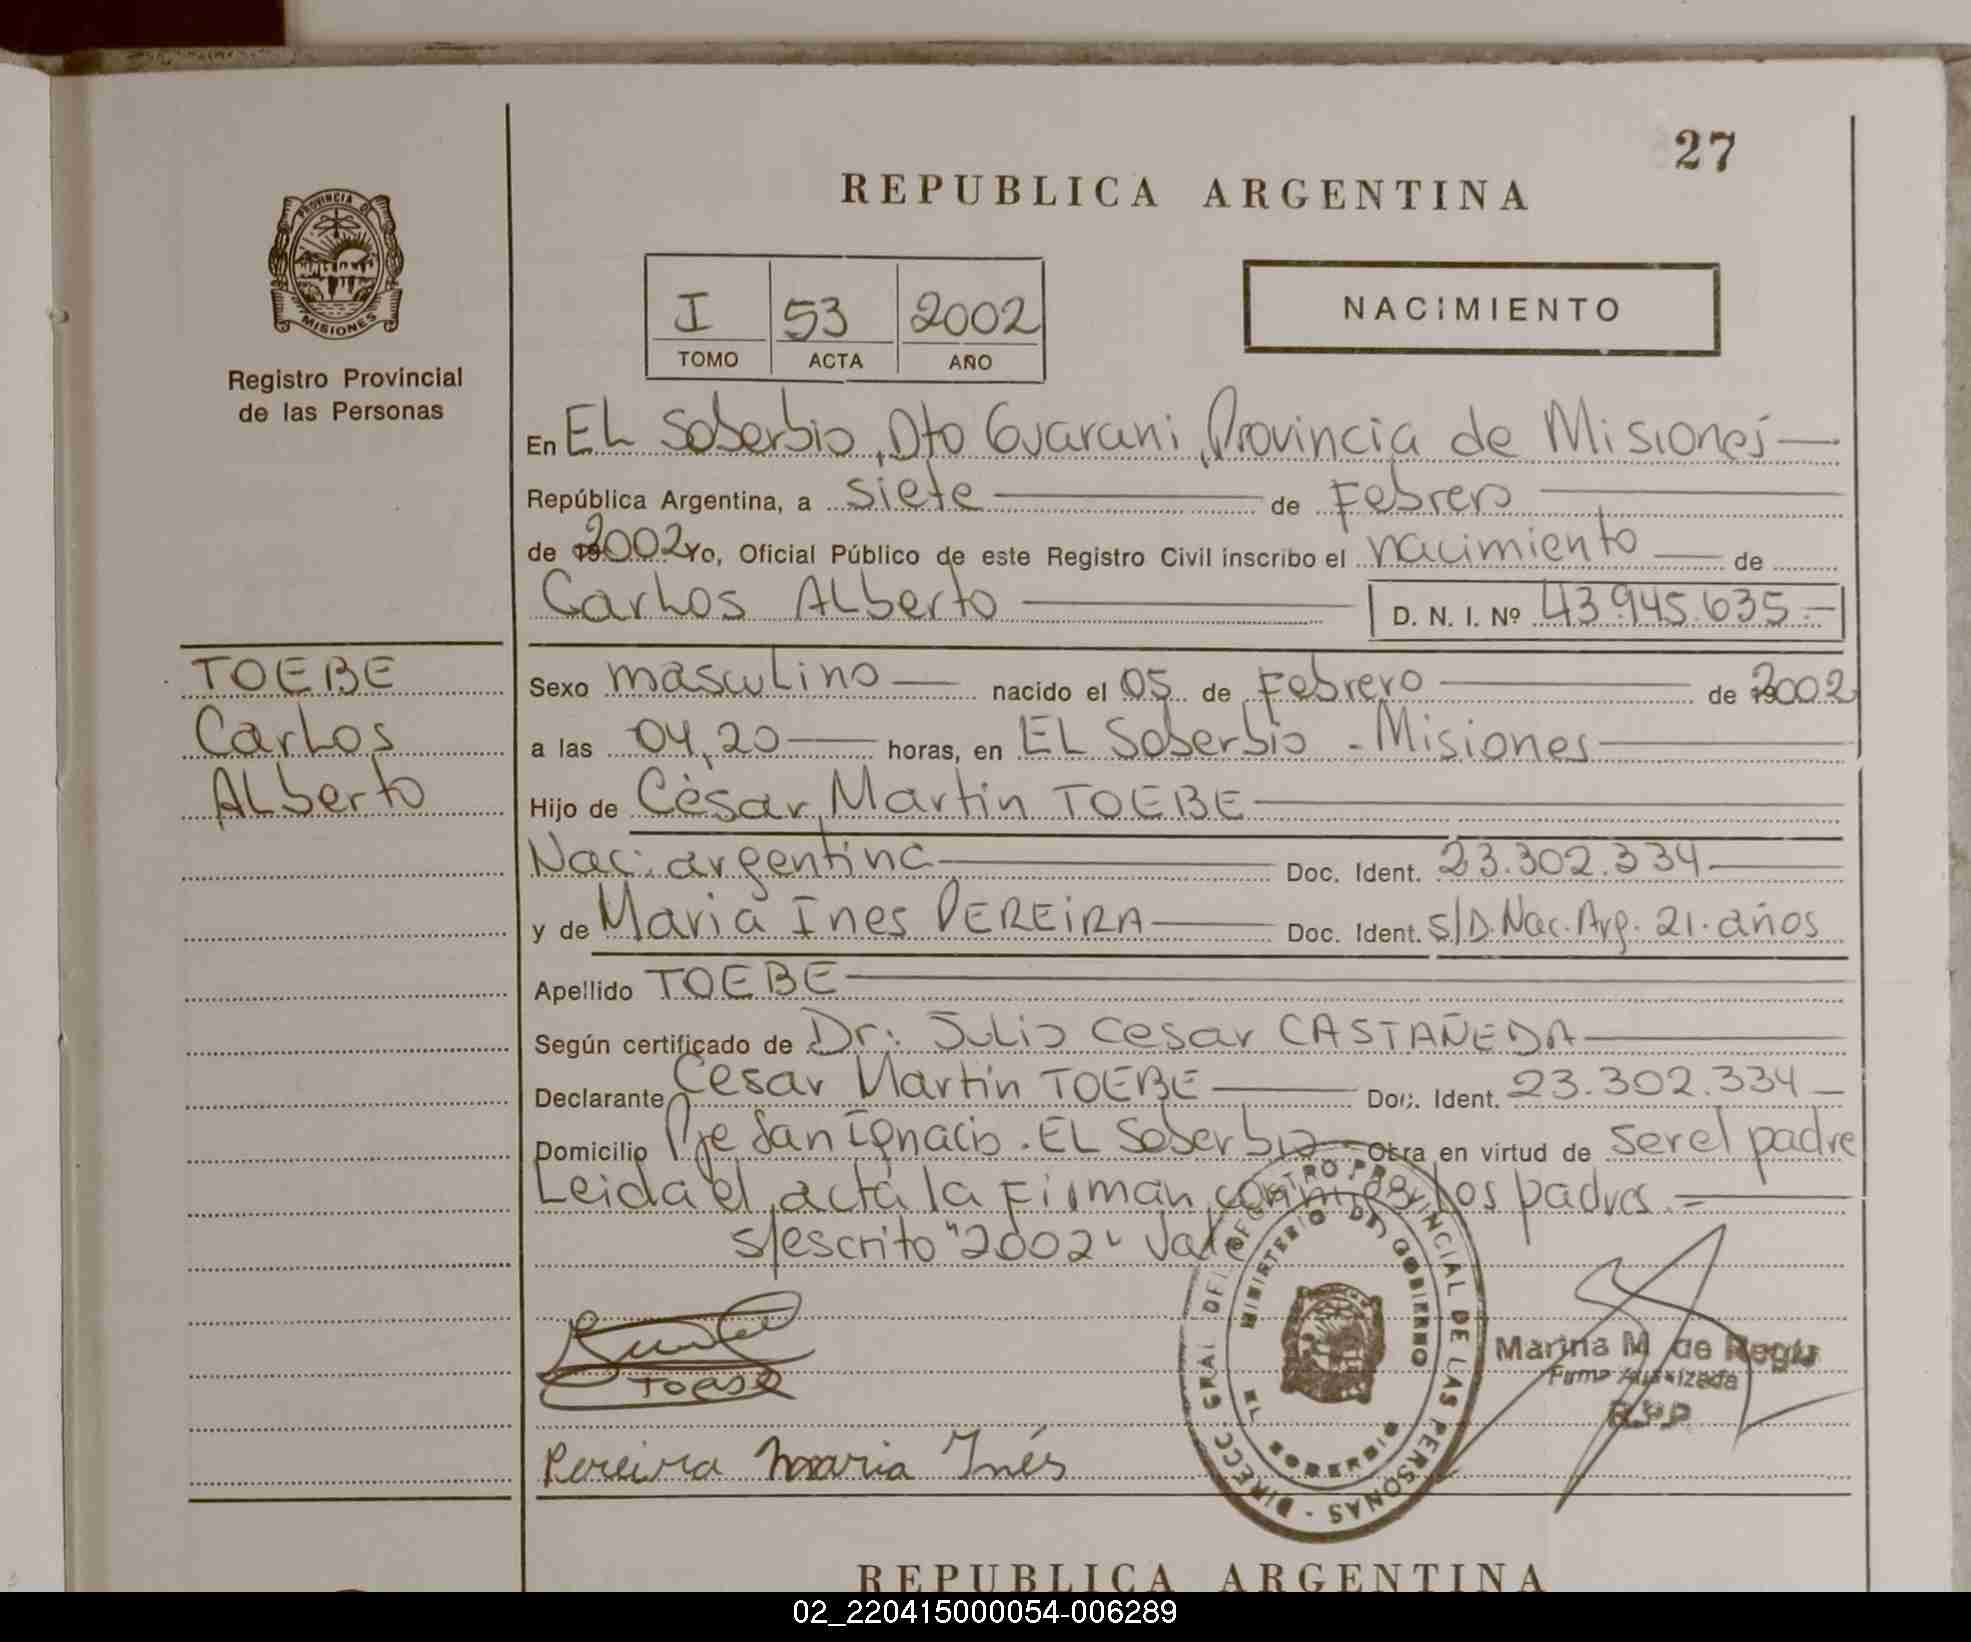 27
REPUBLICA ARGENTINA
PROVINCIA DE
MISIONES
Registro Provincial
de las Personas
I 53 2002
TOMO ACTA AÑO
NACIMIENTO
En EL Soberbio, Dto Guarani, Provincia de Misiones
República Argentina, a siete de Febrero
de 2002 Yo, Oficial Público de este Registro Civil inscribo el nacimiento de
Carlos Alberto D. N. I. Nº 43.945.635.-
TOEBE
Carlos
Alberto
Sexo masculino nacido el 05 de Febrero de 2002
a las 04,20 horas, en EL Soberbio - Misiones
Hijo de César Martin TOEBE
Nac: argentina Doc. Ident. 23.302.334
y de Maria Ines PEREIRA Doc. Ident. S/D. Nac. Arg. 21. años
Apellido TOEBE
Según certificado de Dr: Julio Cesar CASTAÑEDA
Declarante Cesar Martin TOEBE Doc. Ident. 23.302.334
Domicilio Pje San Ignacio. EL Soberbio Obra en virtud de ser el padre
Leida el acta la Firman conmigo los padres.-
s/escrito "2002" Vale
DIRECC GRAL DEL REGISTRO PROVINCIAL DE LAS PERSONAS
MINISTERIO DE GOBIERNO
EL SOBERBIO
Toebe
Pereira Maria Inés
Marina M de
Firma Autorizada
R.P.P
REPUBLICA ARGENTINA
02_220415000054-006289